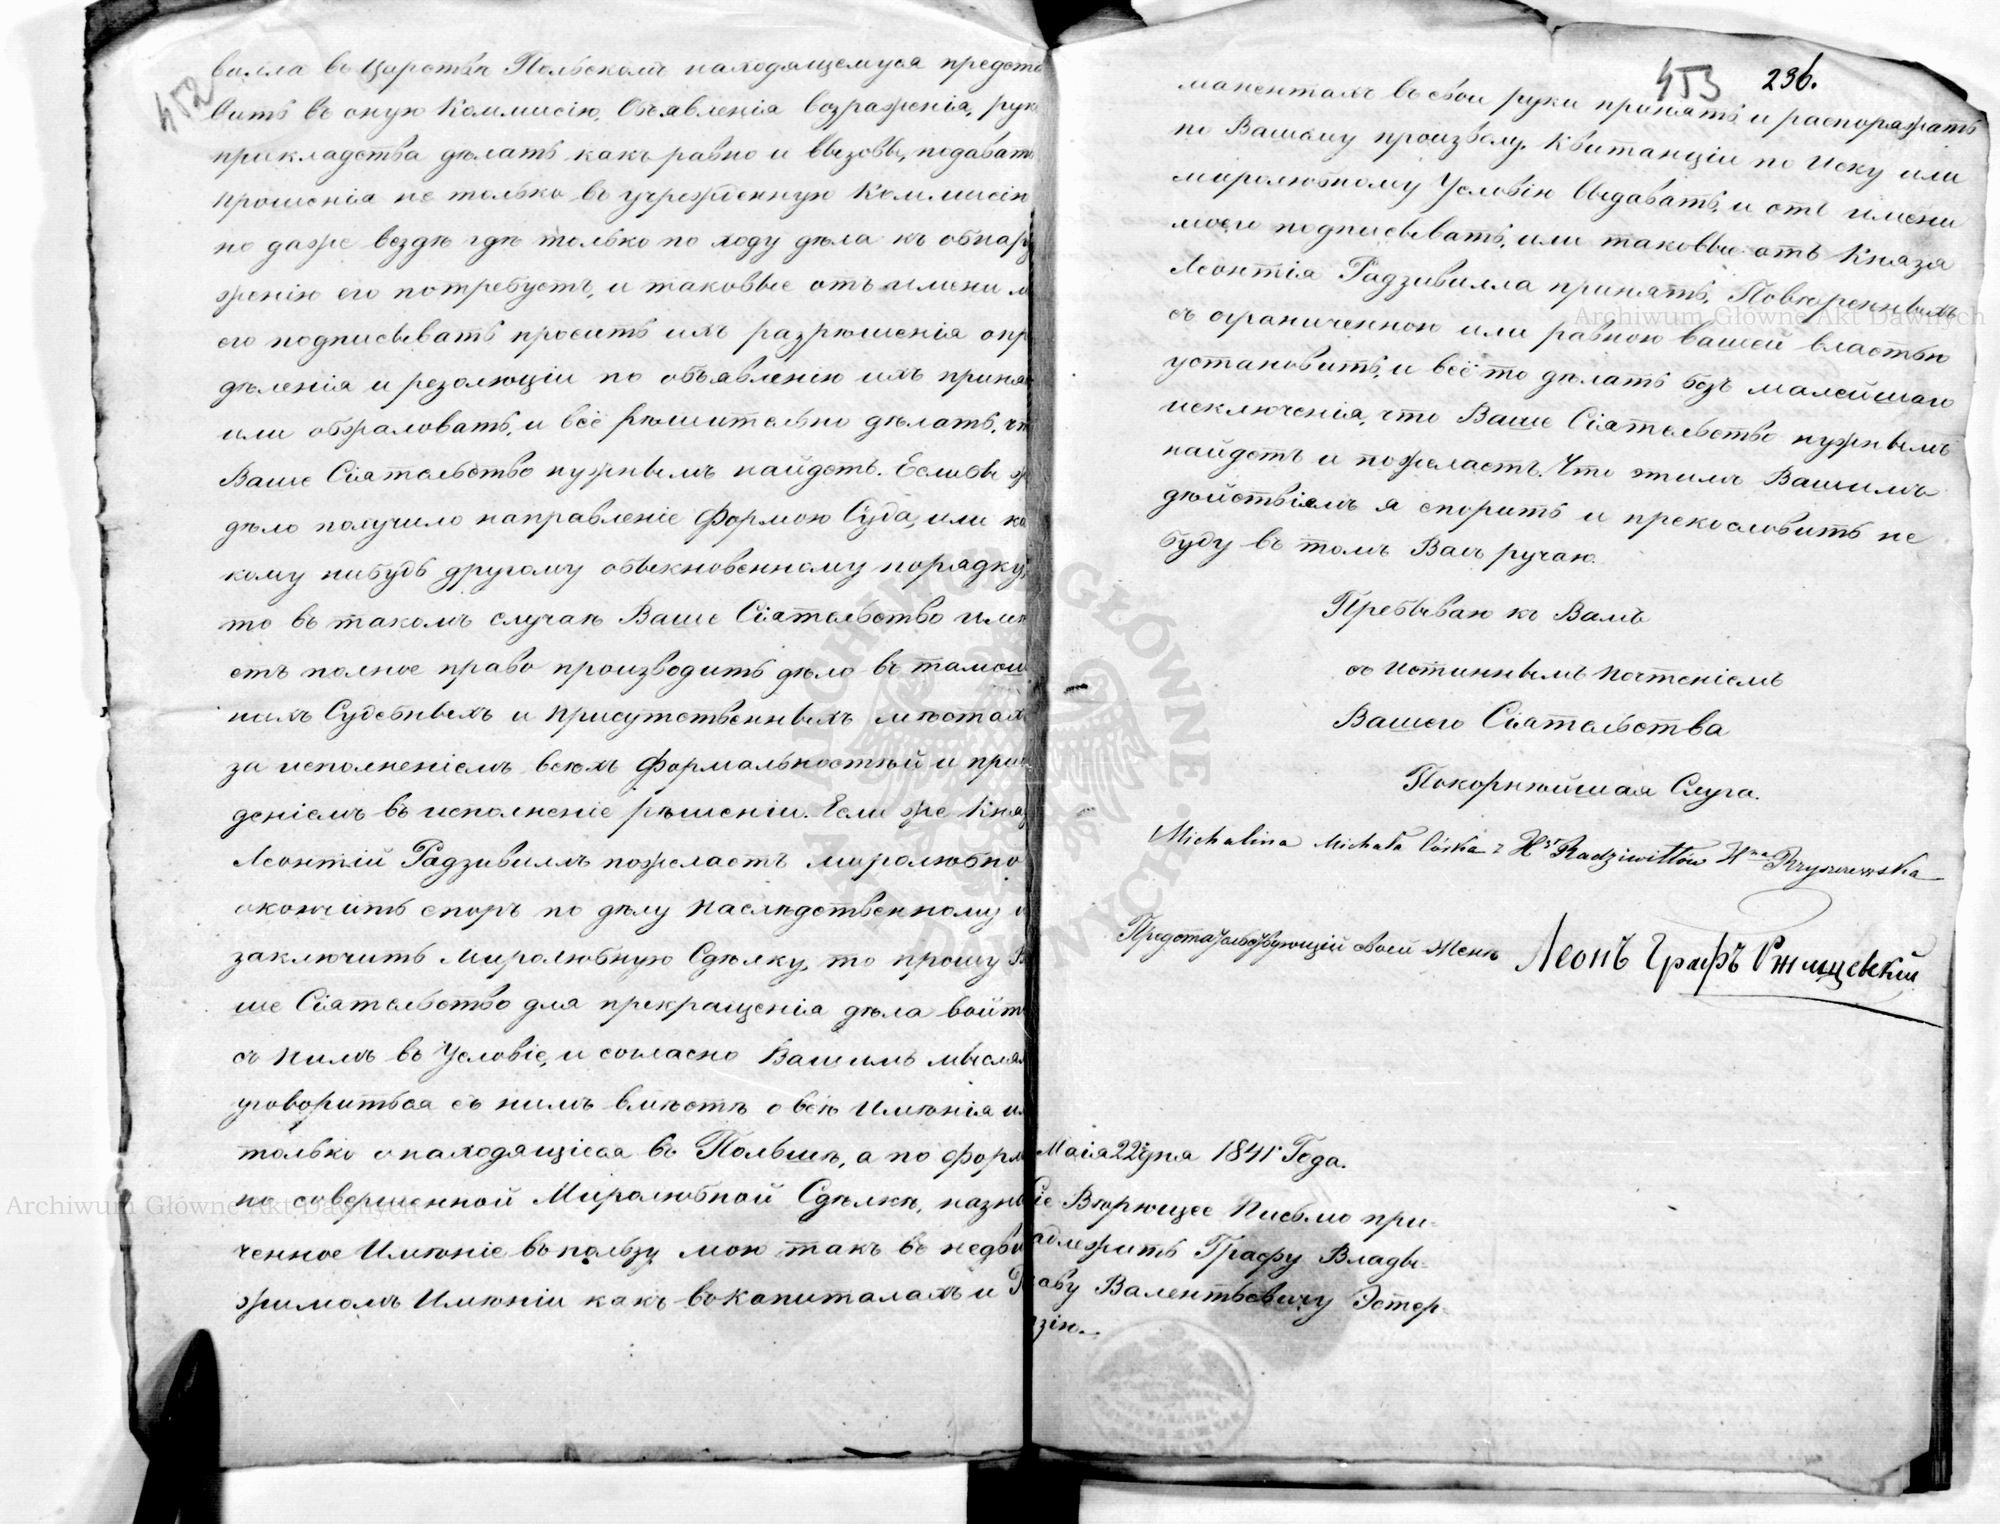 452
вилла въ Царствѣ Польскомъ находящемуся предста
вить въ оную Коммисію, Объявленія возраженія, рук
прикладства дѣлать какъ равно и Вызовы, подавать
прошенія не только въ учрежденную Коммисію
но даже вездѣ гдѣ только по ходу дѣла къ обнару
женію его потребуетъ, и таковые отъ имени м
его подписывать просить ихъ разрѣшенія опр
дѣленія и резолюціи по объявленію ихъ приня
или обжаловать, и всё рѣшительно дѣлать, чт
Ваше Сіятельство нужнымъ найдетъ. Еслибы ж
дѣло получило направленіе Формою Суда, или ка
кому нибудь другому обыкновенному порядку,
то въ такомъ случаѣ Ваше Сіятельство имѣ
етъ полное право производить дѣло въ тамош
нихъ Судебныхъ и присутственныхъ мѣстахъ
за исполненіемъ всѣхъ Формальностѣй и прив
деніемъ въ исполненіе рѣшеніи. Если же Княз
Леонтій Радзивиллъ пожелаетъ миролюбно
окончить споръ по дѣлу Наслѣдственному и
заключить Миролюбную Сдѣлку, то прошу В
ше Сіятельство для прекращенія дѣла войти
съ нимъ въ Условіе, и согласно Вашимъ мыслям
уговориться съ нимъ вмѣстѣ о всѣ Имѣнія ил
только о находящіеся въ Польшѣ, а по форм
но совершенной Миролюбной Сдѣлкѣ, назна
ченное Имѣніе въ пользу мою такъ въ недви
жимомъ Имѣніи какъ въ Капиталахъ и
453 236.
манентахъ въ свои руки принять и распоряжать
по Вашему произволу. Квитанціи по Иску или
миролюбному Условію Выдавать, и отъ имени
моего подписывать, или таковые отъ Князя
Леонтія Радзивилла принять. Повѣренныхъ
съ ограниченною или равною вашей властью
установить, и всё то дѣлать безъ малейшаго
исключенія, что Ваше Сіятельство нужнымъ
найдетъ и пожелаетъ. Что этимъ Вашимъ
дѣйствіямъ я спорить и прекословить не
буду въ томъ Вамъ ручаю.
Пребываю къ Вамъ
съ истиннымъ почтеніемъ
Вашего Сіятельства
Покорнѣйшая Слуга.
Michalina Michała Córka z Xt Radziwiłłów Hna Rzyszczewska
Предстательствующій своей Женѣ Леонъ Графъ Ржищевскій
Маія 22 дня 1841 Года.
Сіе Вѣрющее Письмо при-
адлежитъ Графу Влады-
славу Валентьевичу Эстер-
зію.
Archiwum Główne Akt Dawnych
Archiwum Główne Akt Dawnych
ARCHIWUM GŁÓWNE AKT DAWNYCH